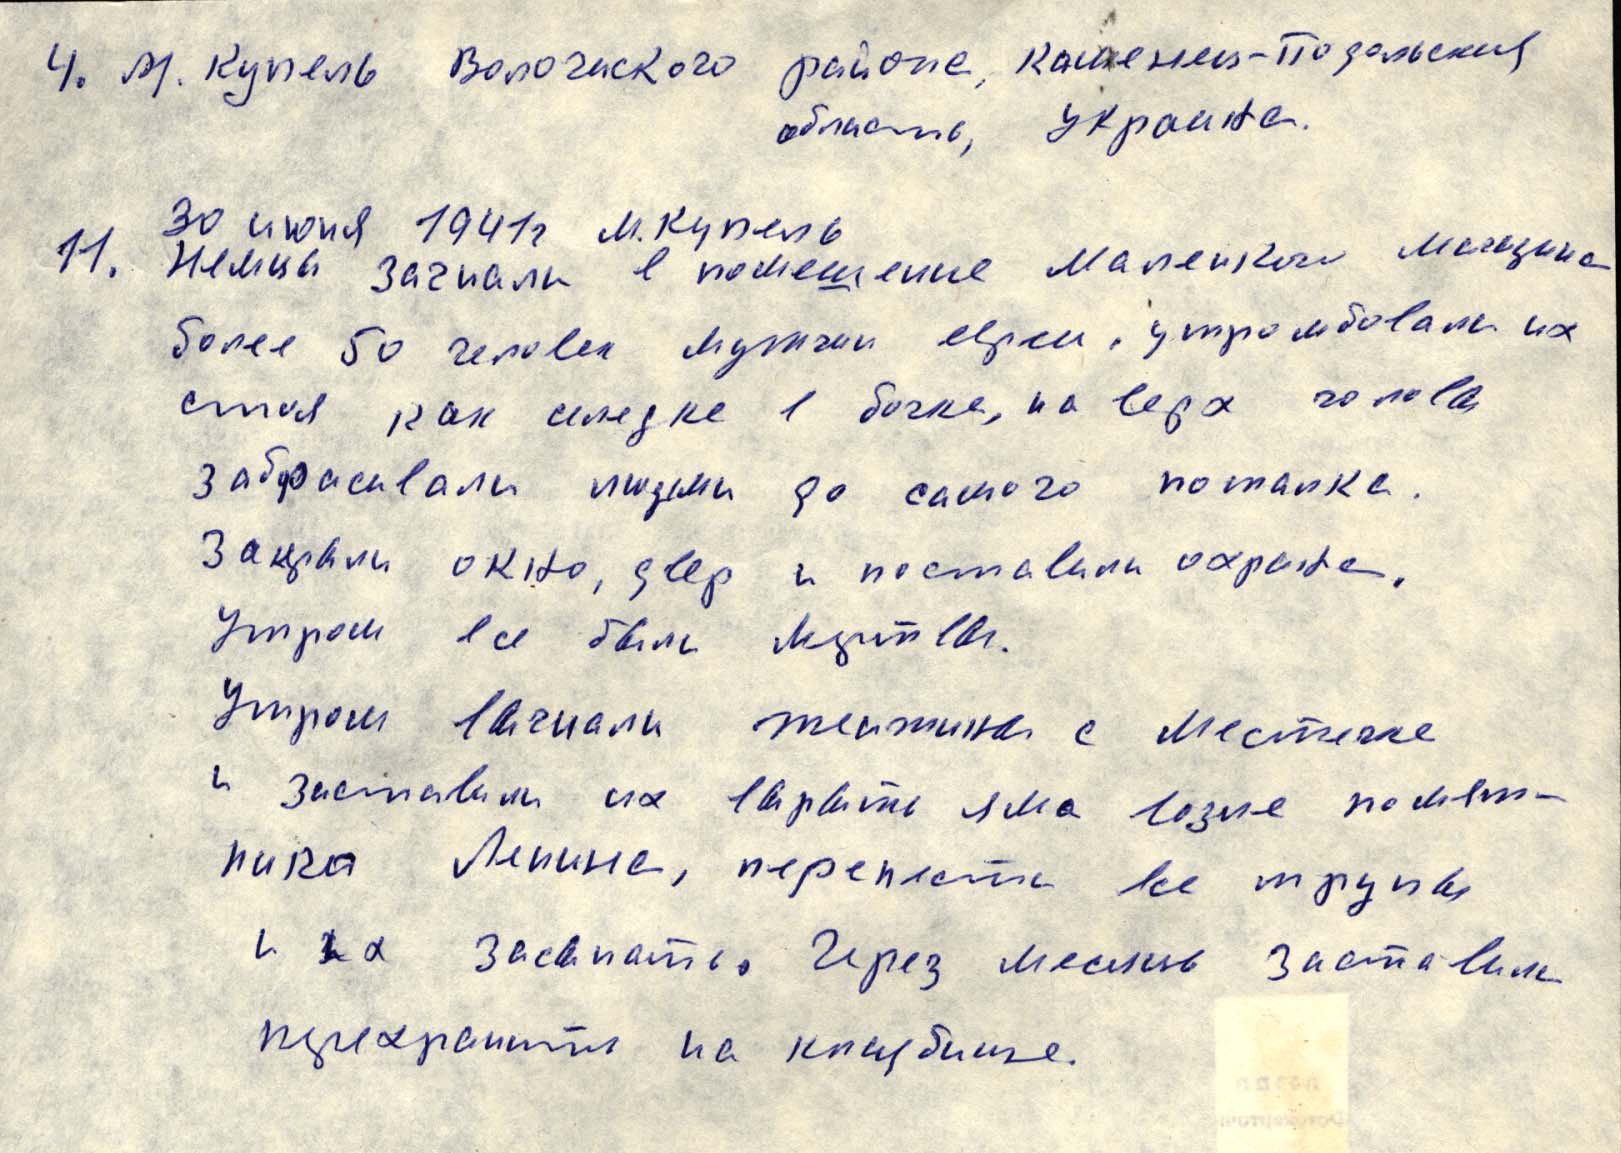 4. М. Купель Волочиского района, Каменец-Подольский
область, Украина.
30 июня 1941г м. Купель
11. Немцы загнали в помещение маленкого магазина
более 50 человек мужчин евреи, утромбовали их
стоя как селедке в бочке, на верх головы
забрасивали людми до самого поталка.
Закрыли окно, двер и поставили охрана.
Утром все были мертвы.
Утром выгнали женжины с местечке
и заставили их вырыть яма возле памят-
ника Ленина, перенести все трупы
и их засыпать. Через месяць заставили
перехранить на кладбище.